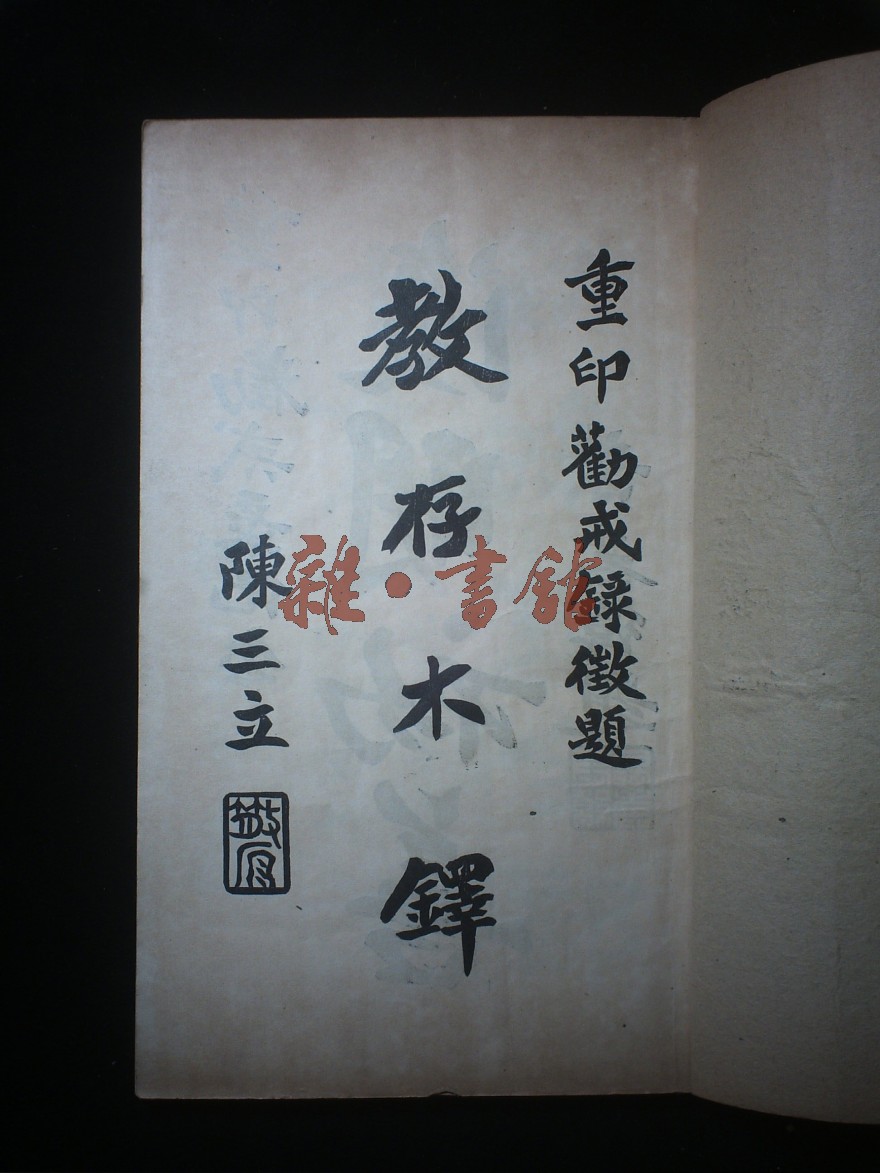 重印勸戒錄徵題
教存木鐸
陳三立
雜·書館